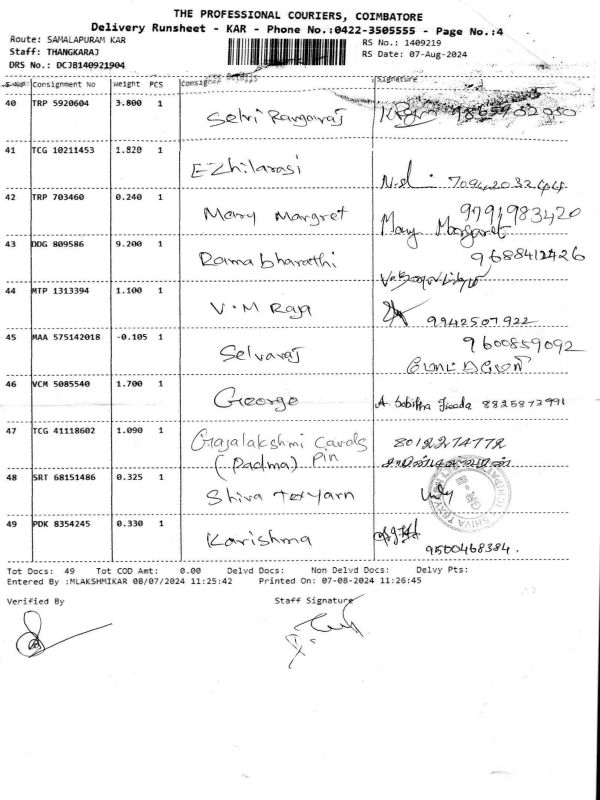 THE PROFESSIONAL COURIERS, COIMBATORE
Delivery Runsheet - KAR - Phone No.:0422-3505555 - Page No.:4
Route: SAMALAPURAM KAR
RS No.: 1409219
Staff: THANGKARAJ
RS Date: 07-Aug-2024
DRS No.: DCJB140921904
S No Consignment No Weight PCS Consignee Signature
40 TRP 5920604 3.800 1 Selvi Rangaraj
41 TCG 10211453 1.820 1 EZhilarasi 7094203244
42 TRP 703460 0.240 1 Mary Margret 9791983420
Mary Margaret
43 DDG 809586 9.200 1 Rama bharathi 9688412426
44 MTP 1313394 1.100 1 V.M Raja 9942507922
45 MAA 575142018 -0.105 1 Selvaraj 9600859092
46 VCM 5085540 1.700 1 George 8825873991
47 TCG 41118602 1.090 1 Gajalakshmi Cards 8012274772
(Padma) Pin
48 SRT 68151486 0.325 1 Shiva texyarn
49 PDK 8354245 0.330 1 Karishma
9500468384.
Tot Docs: 49 Tot COD Amt: 0.00 Delvd Docs: Non Delvd Docs: Delvy Pts:
Entered By :MLAKSHMIKAR 08/07/2024 11:25:42 Printed On: 07-08-2024 11:26:45
Verified By Staff Signature